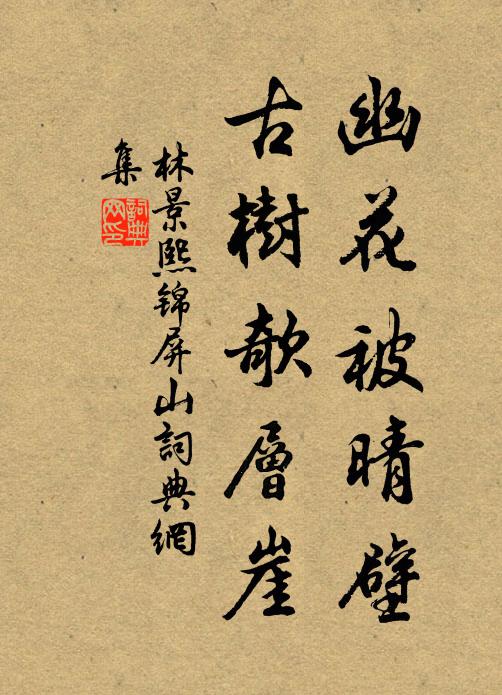 幽花被晴壁
古樹欹層崖
林景熙锦屏山詞典網
集
詞典
网印